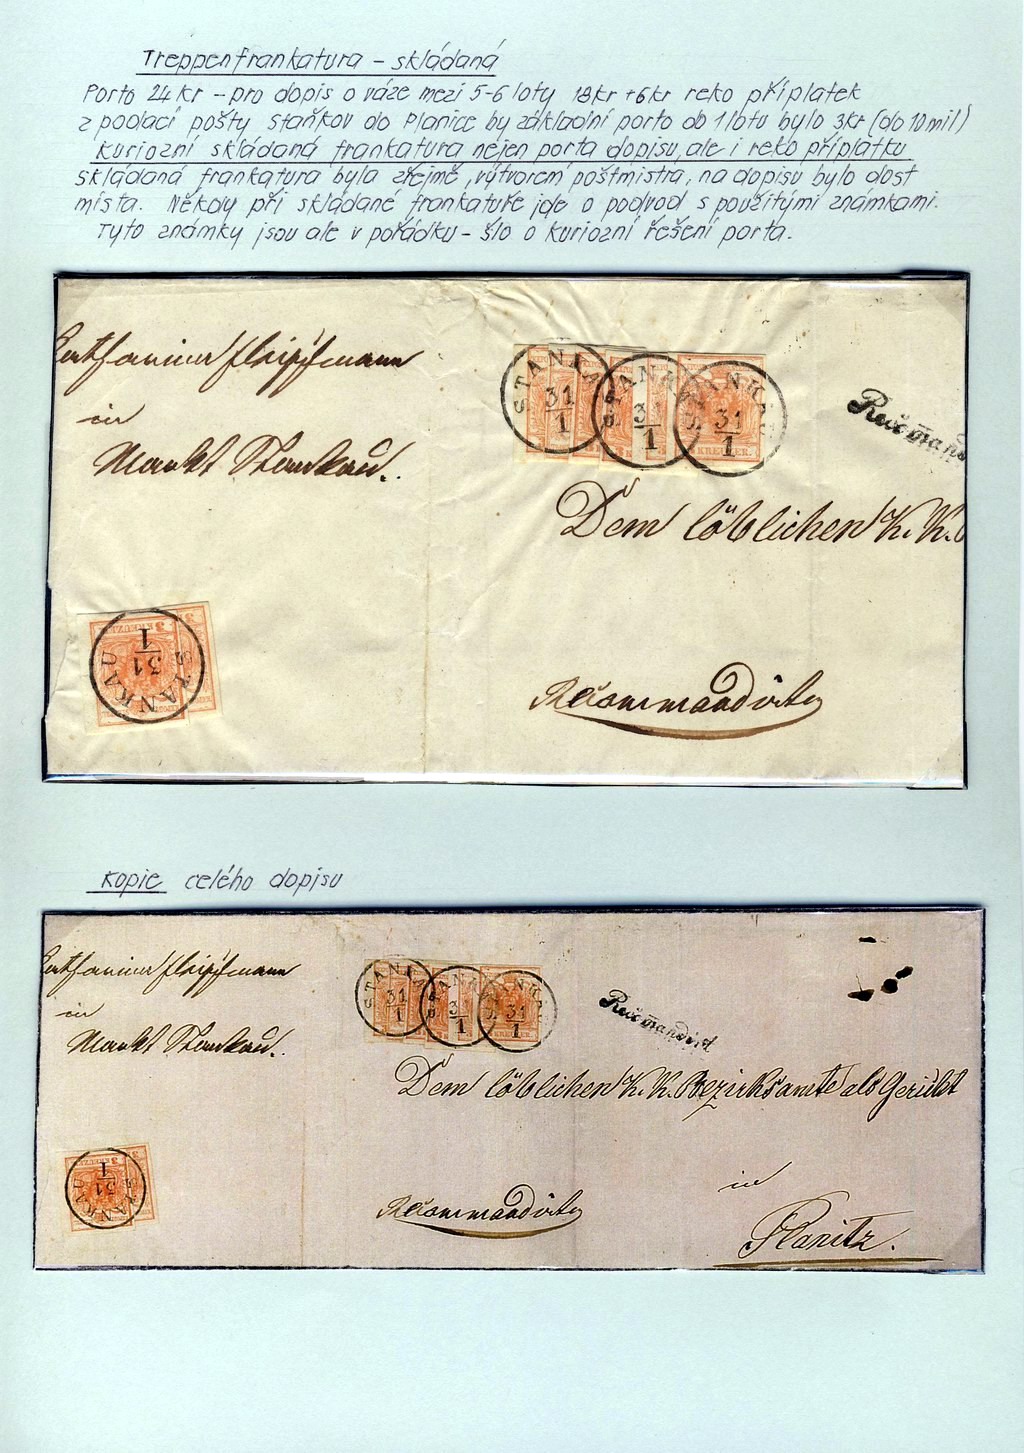 Treppenfrankatura – skládaná
Porto 24 kr – pro dopis o váze mezi 5-6 loty 18kr + 6kr reko příplatek
z podací pošty Staňkov do Planice by základní porto do 1 lotu bylo 3kr (do 10 mil)
Kuriozní skládaná frankatura nejen porta dopisu, ale i reko příplatku
skládaná frankatura byla zřejmě „výtvorem poštmistra, na dopisu bylo dost
místa. Někdy při skládané frankatuře jde o podvod s použitými známkami.
Tyto známky jsou ale v pořádku – šlo o kuriozní řešení porta.
in
Markt Stankau.
STANKAU
31
1
STANKAU
31
1
STANKAU
31
1
KREUZER.
Recomand
Dem löblichen K. K.
3 KREUZER
STANKAU
31
1
Recommandirt
Kopie celého dopisu
in
Markt Stankau.
STANKAU
31
1
STANKAU
31
1
STANKAU
31
1
Recomandirt
Dem löblichen K. K. Bezirksamte als Gericht
3 KREUZER
STANKAU
31
1
Recommandirt
in
Planitz.